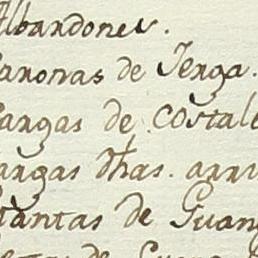 Albardones.
Caronas de Jerga.
Cargas de Costale
Cargas dhas. arri
Mantas de Guan
de